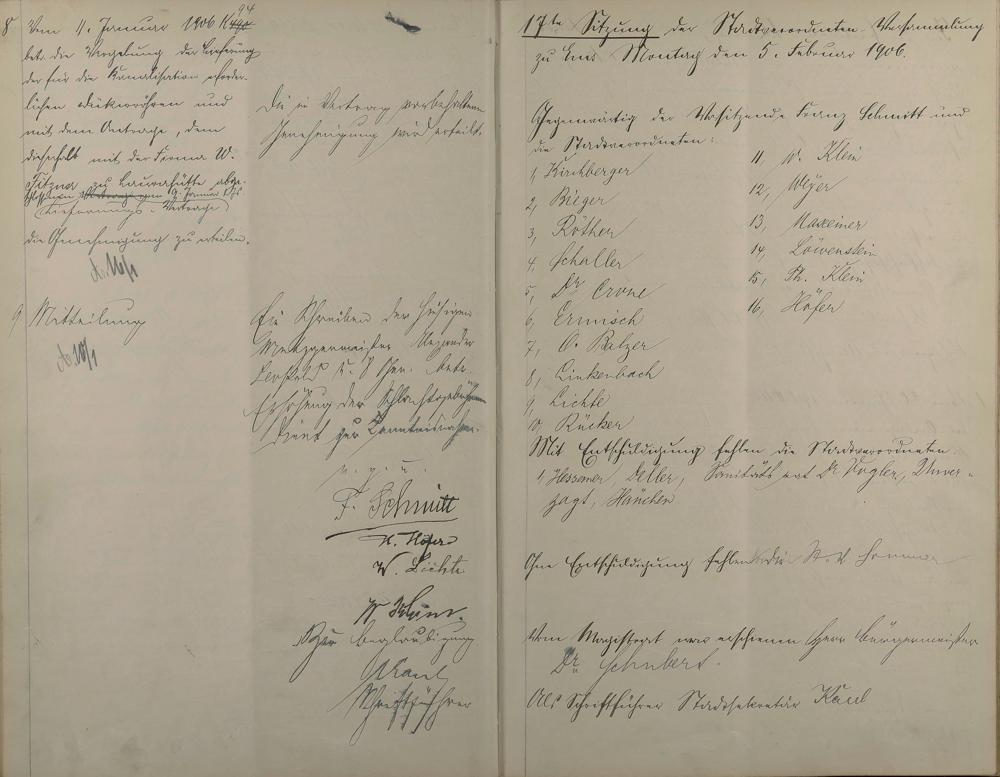 8 Vom 11. Januar 1906 K 94
betr. die Vergebung der Lieferung
der für die Kanalisation erforder-
lichen Dükerröhren und
mit dem Antrage, dem
dieserhalb mit der Firma W.
Fitzner zu Laurahütte abge-
schlossenen
Lieferungs-Vertrage
die Genehmigung zu erteilen.
Die im Vertrag vorbehaltene
Genehmigung wird erteilt.
9 Mitteilung
Ein Schreiben der hiesigen
Metzgermeister Alexander
u. 8 Gen. betr.
Erhöhung der Schlachtgebühren
dient zur Kenntnisnahme.
v. g. u.
F. Schmitt
H. Höfer
W. Lichte
Zur Beglaubigung
Kaul
Schriftführer
17te Sitzung der Stadtverordneten-Versammlung
zu Ems Montag den 5. Februar 1906.
Gegenwärtig der Vorsitzende Franz Schmitt und
die Stadtverordneten:
1, Kirchberger
2, Bieger
3, Röther
4, Schaller
5, Dr. Crone
6, Ermisch
7, O. Balzer
8, Linkenbach
9, Lichte
10, Rücker
11, W. Klein
12, Weyer
13, Maxeiner
14, Löwenstein
15, Th. Klein
16, Höfer
Mit Entschuldigung fehlen die Stadtverordneten
Hessemer, Deller, Sanitätsrat Dr. Vogler, Unver-
zagt, Hänchen
Ohne Entschuldigung fehlen die St. V. Sommer
Vom Magistrat war erschienen Herr Bürgermeister
Dr. Schubert.
Als Schriftführer Stadtsekretär Kaul